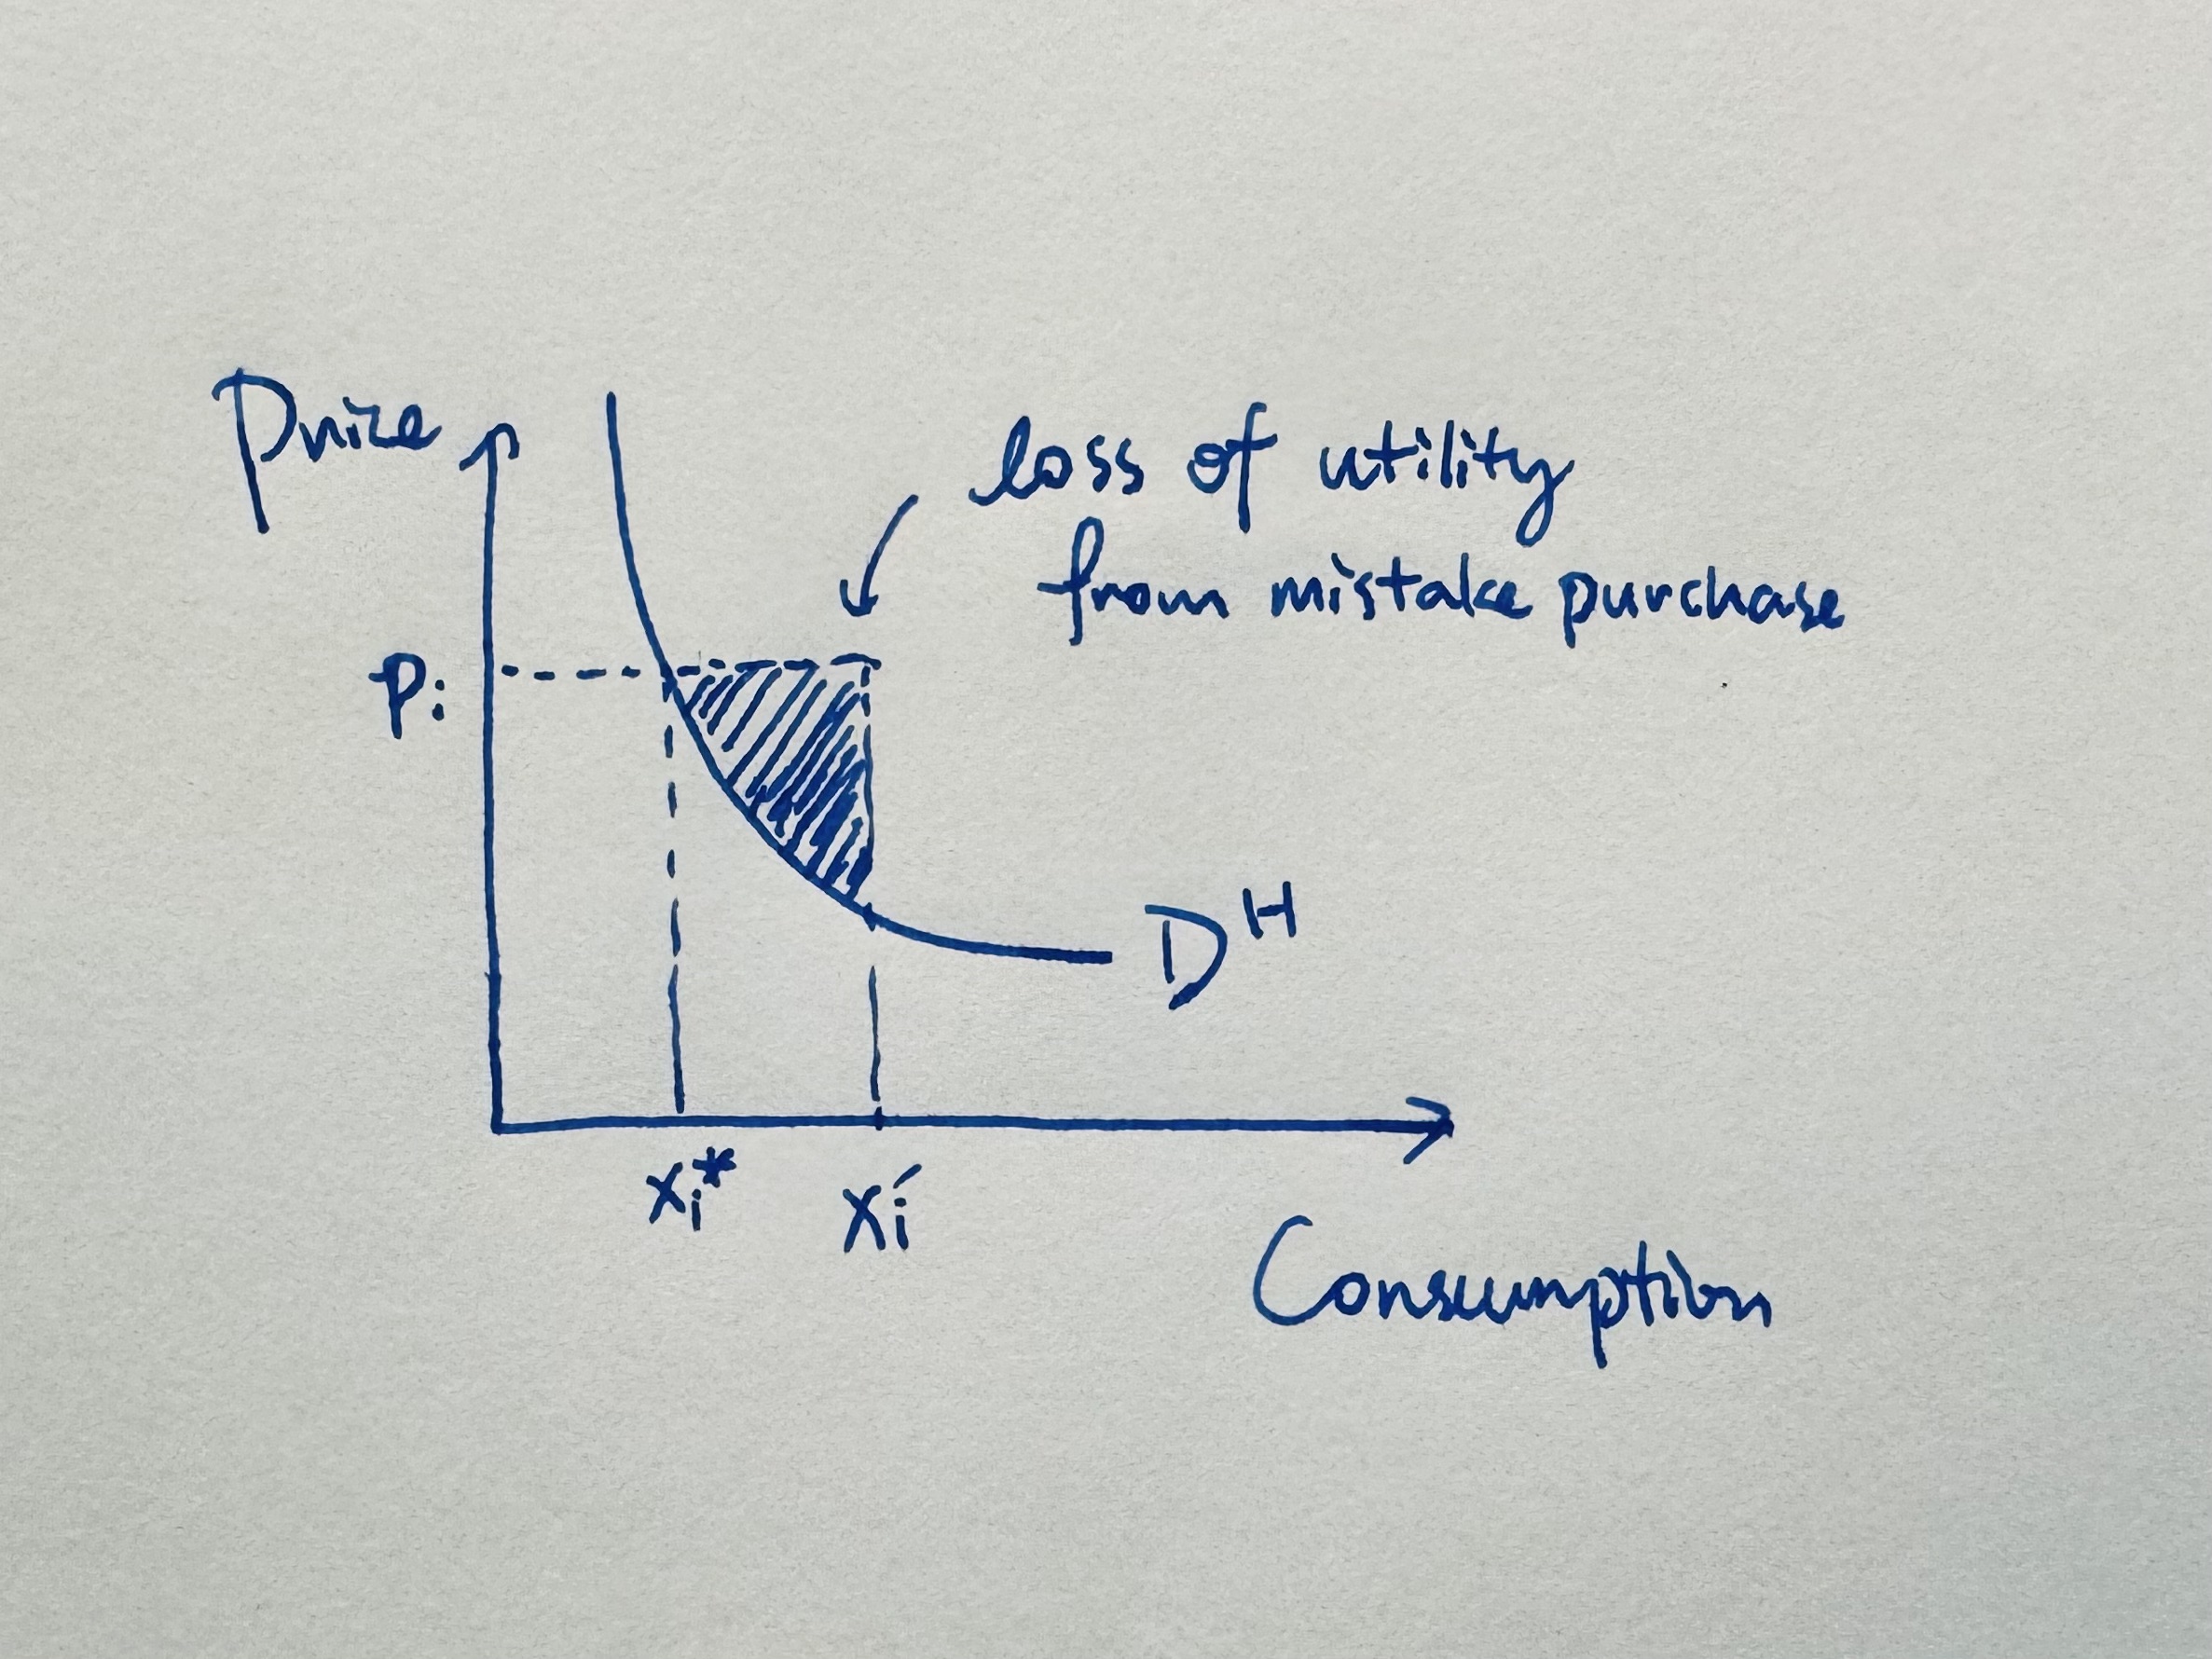 Price
loss of utility
from mistake purchase
Pi
D^H
xi*
xi′
Consumption